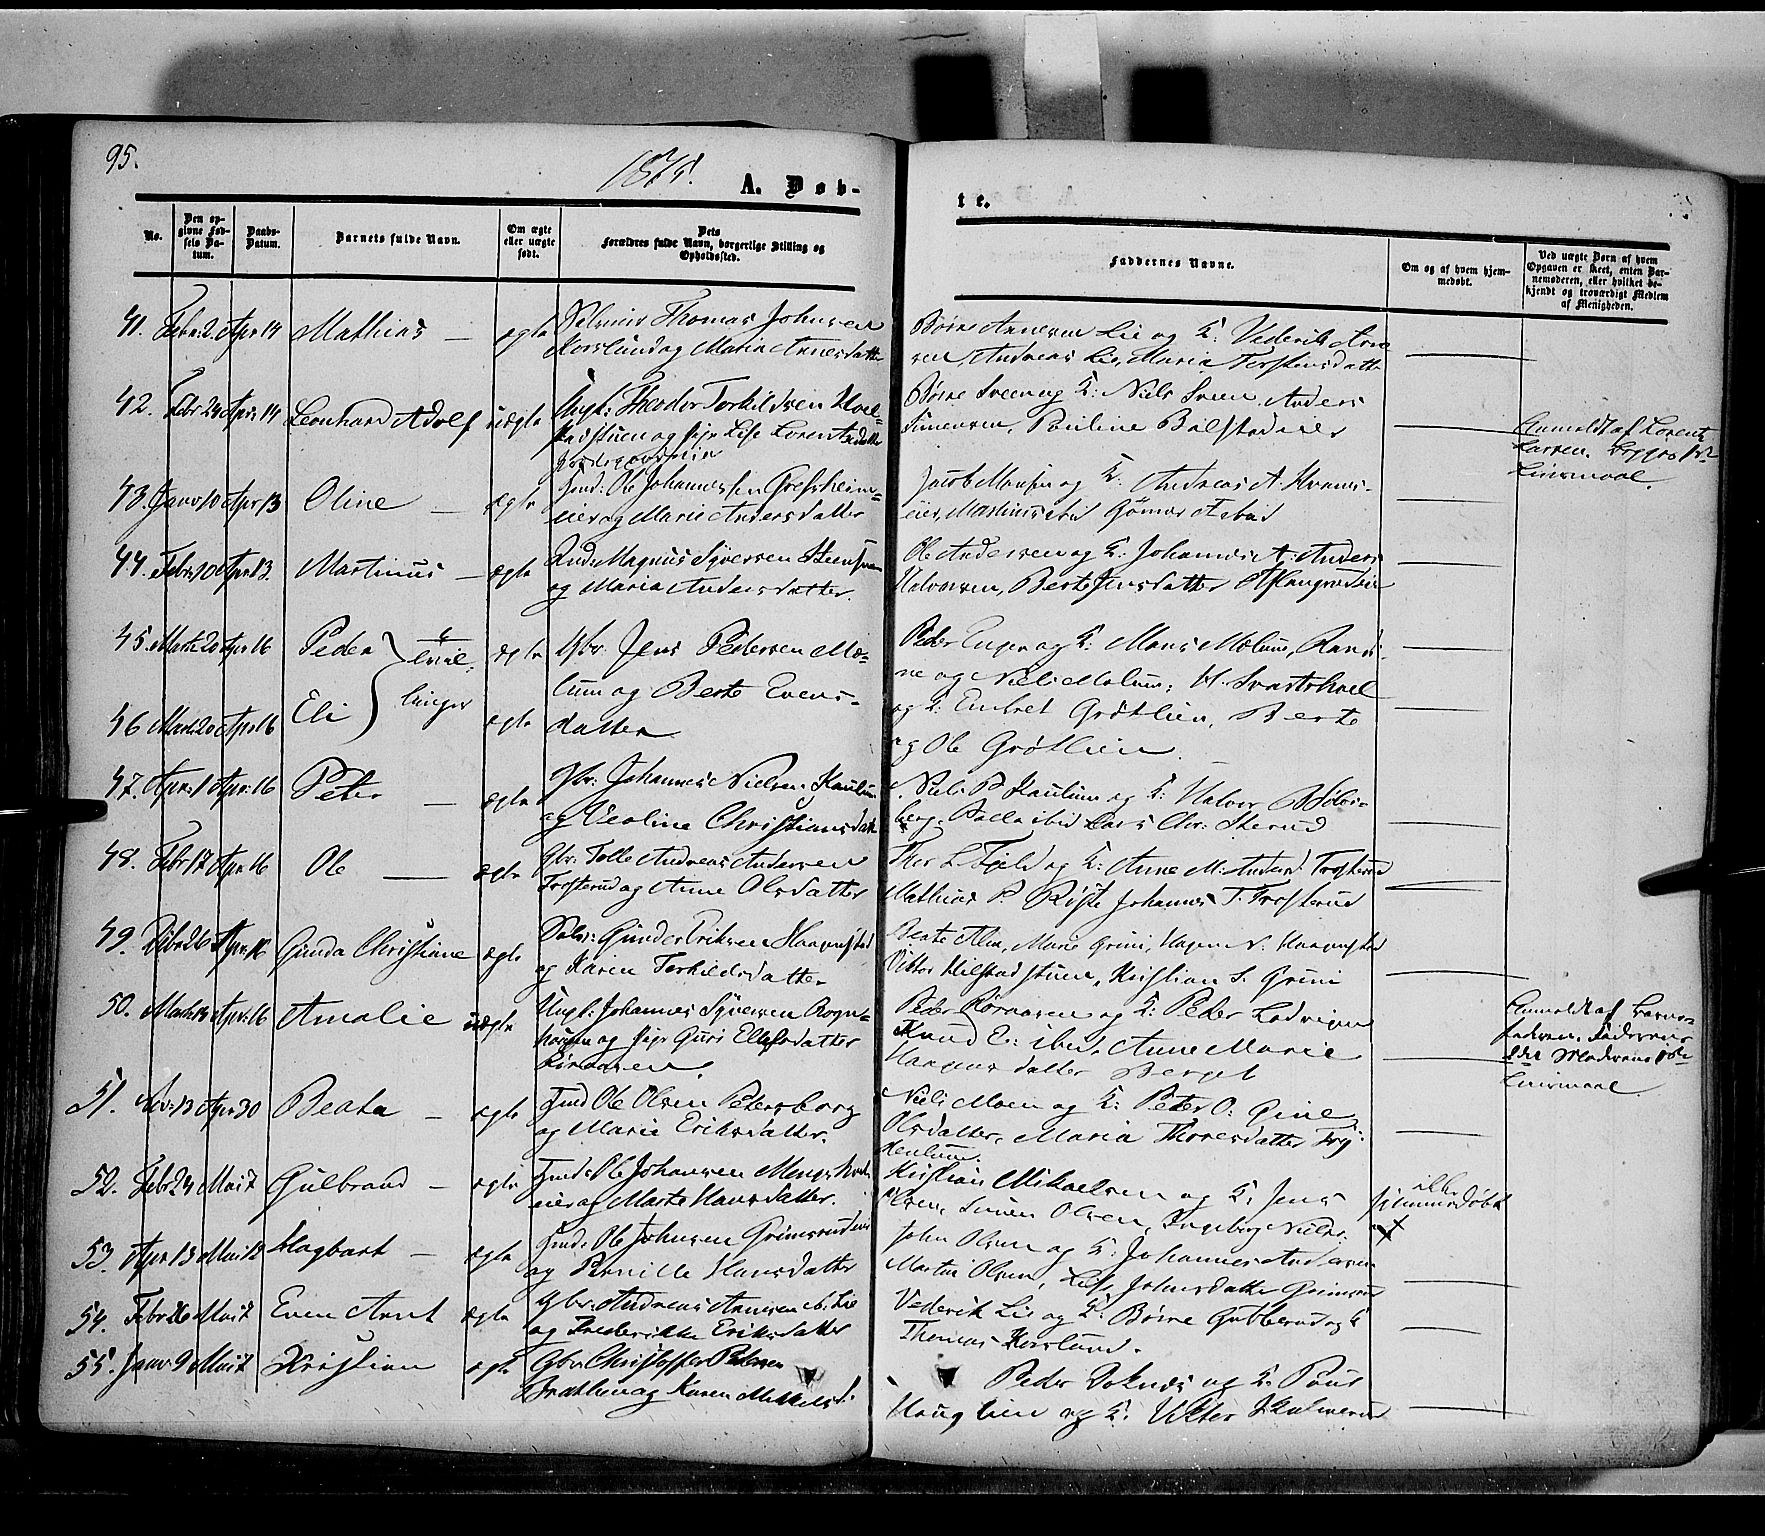 95.
1875.
A. Døb-
te.
No.
Den op-
givne Fød-
sels Da-
tum.
Daabs-
Datum.
Barnets fulde Navn.
Om ægte
eller uægte
født.
Dets
Forældres fulde Navn, borgerlige Stilling og
Opholdssted.
Faddernes Navne.
Om og af hvem hjem-
medøbt.
Ved uægte Børn af hvem
Opgaven er skeet, enten Bar-
nemoderen, eller hvilket be-
kjendt og troværdigt Medlem
af Menigheden.
41. Febr: 2 Apr 14 Mathias — ægte
Selveier Thomas Johnsen
Korslund og Maria Arnesdatter
Børre Arnesen Lie og K: Vederik Arne
sen, Andreas Lie, Maria Torstensdatter
42. Febr 24 Apr: 14 Leonhard Adolf uægte
Ungk: Theodor Torkildsen
stuen og Pige Lise Lorentsdatter
Børre Sveen og K: Niels Sveen, Anders
Simensen, Pauline Bølstadeier
Anmeldt af Lorents
Larsen
Leiermaal.
43. Janv 10 Apr 13 Oline — ægte
Inds: Ole Johannessen Grefsheim-
eier og Marie Andersdatter
Jacob Monsen og K: Andreas A. Kvams-
eier, Martinus ibid
44. Febr: 10 Apr: 13. Martinus — ægte
Inds: Magnus Syversen
og Maria Andersdatter.
Ole Andersen og K: Johannes A: Anders
Halvorsen, Berte Jensdatter
45. Marts 20 Apr 16 Peder } Tvil- ægte
Gbr. Jens Pedersen Mæ-
lum og Berte Evens-
datter
Peder Enger og K: Mons Mælum, Rand-
ine og Niels Mælum; H. Svartshoel
46 Marts 20 Apr 16 Eli } linger ægte
og K: Embret Grøtlien, Berte
og Ole Grøtlien.
47. Apr: 1 Apr: 16 Peter — ægte
Gbr: Johannes Nielsen Kaulum
og Eveline Christiansdatt
Niels P. Kaulum og K: Halvor
berg. Pella ibid Lars Chr: Skerud
48. Febr 17 Apr 16 Ole — ægte
Gbr: Tolle Andreas Andersen
Trosterud og Anne Olsdatter
Thor L. Fjeld og K: Anne M. Andersd Trosterud
Mathias P. Røste Johannes T. Trosterud
49. Apr: 16 Gunda Christiane ægte
Selv: Gunder Eriksen Haagenstad
og Karen Torkildsdatter
Beate Alm, Marie Grini, Hagen N. Haagenstad
Viktor Hilstadstuen, Kristian S. Grini
50. Marts 13 Apr: 16 Amalie uægte
Ungk: Johannes Syversen Rogn-
haugen og Pige Guri Ellefsdatter
Kornaasen.
Peder Kornaasen og K: Peder Ludvigsen
Knud E: ibid, Anne Marie
Haagensdatter Berget
Anmeldt af Barne-
faderen. Faderens
Leiermaal.
51. Nov: 13 Apr 30 Beata — ægte
Inds Ole Olsen Petersborg
og Marie Eriksdatter.
Niels Moen og K: Peter O: Gine
Olsdatter, Maria Thoresdatter Fry-
denlund.
52. Febr 24 Mai 7 Gulbrand — ægte
Inds: Ole Johansen Mengshoel-
eier og Marte Hansdatter.
Kristian Mikaelsen og K: Jens
Olsen, Simen Olsen, Ingeborg Nilds:
ikke
hjemmedøbt
53. Apr 13 Mai 12 Hagbart — ægte
Inds: Ole Johnsen Grimsrudeie
og Pernille Hansdatter
John Olsen og K: Johannes Andersen
Martin Olsen, Lise Johnsdatter Grimsrud
54. Febr 26 Mai 7 Even Arnt ægte
Gbr: Andreas Arnesen N. Lie
og Frederikke Eriksdatter
Vederik Lie og K: Børre Gutterud og K
Thomas Korslund.
55. Janv: 9 Mai 7 Kristian ægte
Gbr: Christoffer Pedersen
Brathen og Karen Mikkelsd:
Peder Doknæs og K: Povel
Haugslien og K: Viktor Skolserud